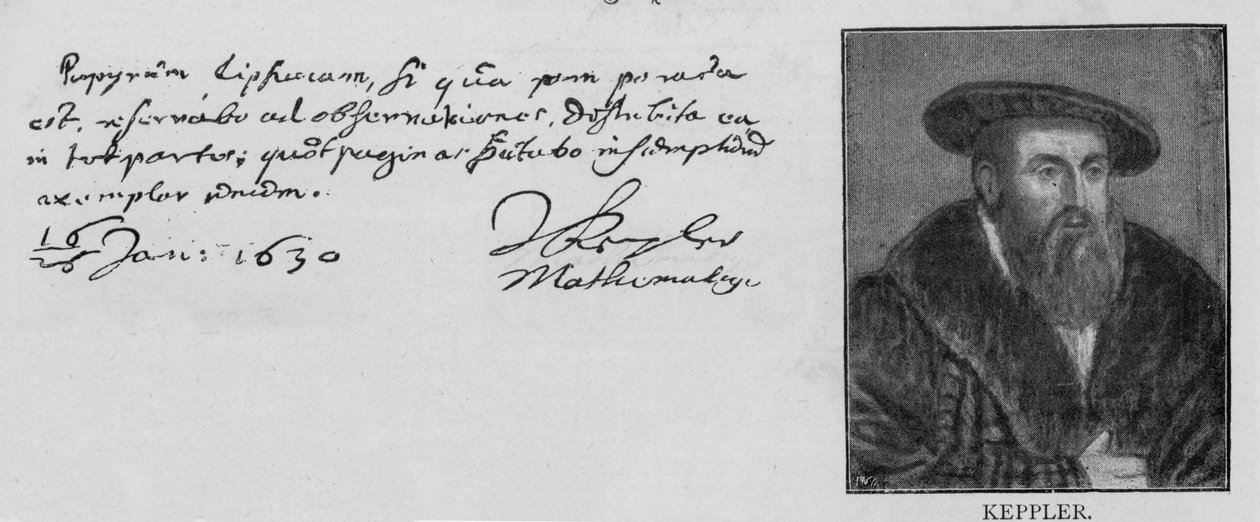 Papyrum Lipsiacam, si qua jam parata
est, reservabo ad observationes, distributa ea
in tot partes, quot paginas putabo insumpturum
exemplar unum.
16/26 Jan: 1630
J Kepler
Mathematic9
KEPPLER.